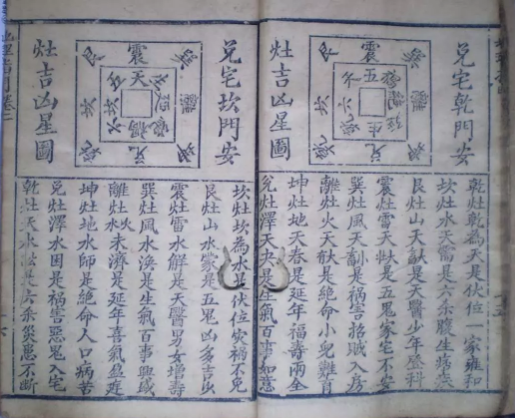 兌宅乾門安
震
五
坎
生
兌
灶吉凶星圖
乾灶乾為天是伏位一家雍和
坎灶水天需是六杀腹生病
艮灶山天是天醫少年登科
震灶雷天壯是五鬼家宅不安
巽灶風天是禍害招賊入房
離灶火天是絶命小兒難育
坤灶地天春是延年福壽兩全
兌灶澤天夬是生氣百事如意
兌宅坎門安
震
天
坎
禍
兌
灶吉凶星圖
坎灶坎為水是伏位災禍不免
艮灶山水蒙是五鬼凶多吉少
震灶雷水解是天醫男女增壽
巽灶風水渙是生氣百事興盛
離灶火水未濟是延年喜氣盈庭
坤灶地水師是絶命人口病苦
兌灶澤水困是禍害惡鬼入宅
乾灶天水訟是六杀災悪不斷